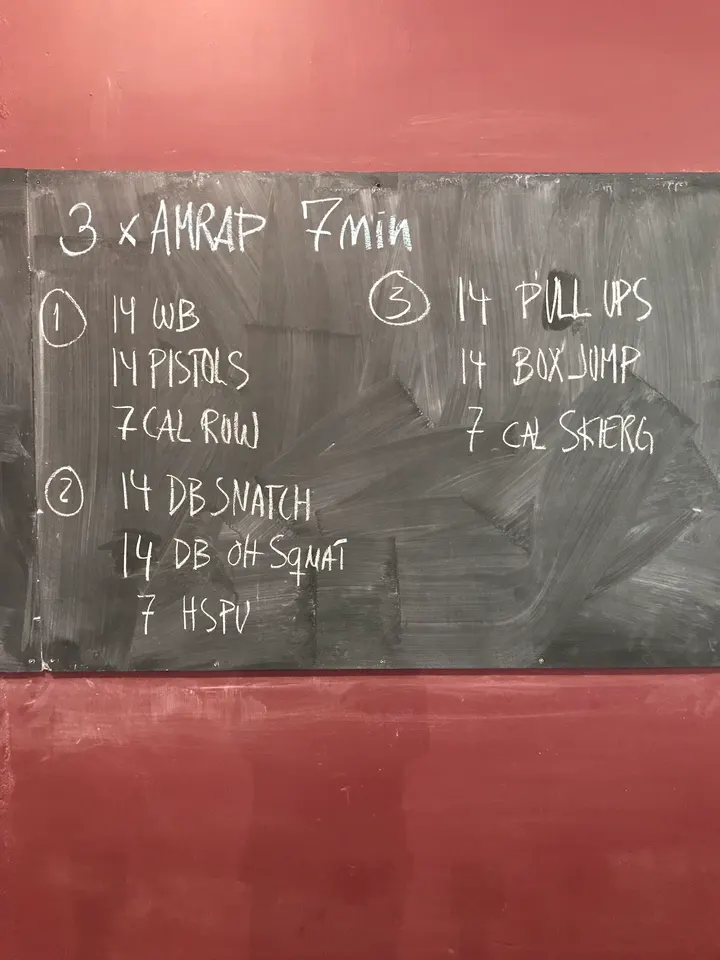 3 x AMRAP 7min
① 14 WB
14 PISTOLS
7 CAL ROW
② 14 DB SNATCH
14 DB OH SQUAT
7 HSPU
③ 14 PULL UPS
14 BOX JUMP
7 CAL SKIERG